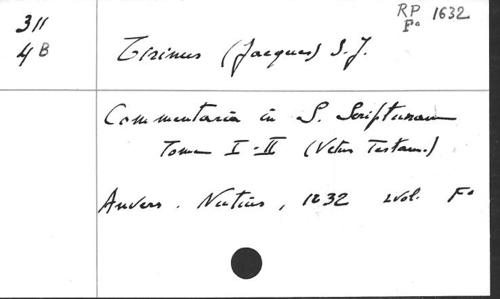 RP 1632
F°
311
4B
Tirinus (Jacques) S.J.
Commentaria in S. Scripturam
Tomus I-II (Vetus Testam.)
Anvers. Nutius, 1632 2vol. F°